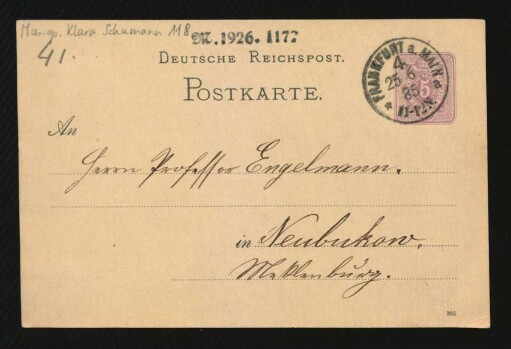 Mus. ep. Klara Schumann 118
41.
M. 1926. 1177
DEUTSCHE REICHSPOST.
POSTKARTE.
FRANKFURT a. MAIN a
4
25 6
85
11-12N.
5
An
Herrn Professor Engelmann.
in Neubukow,
Meklenburg.